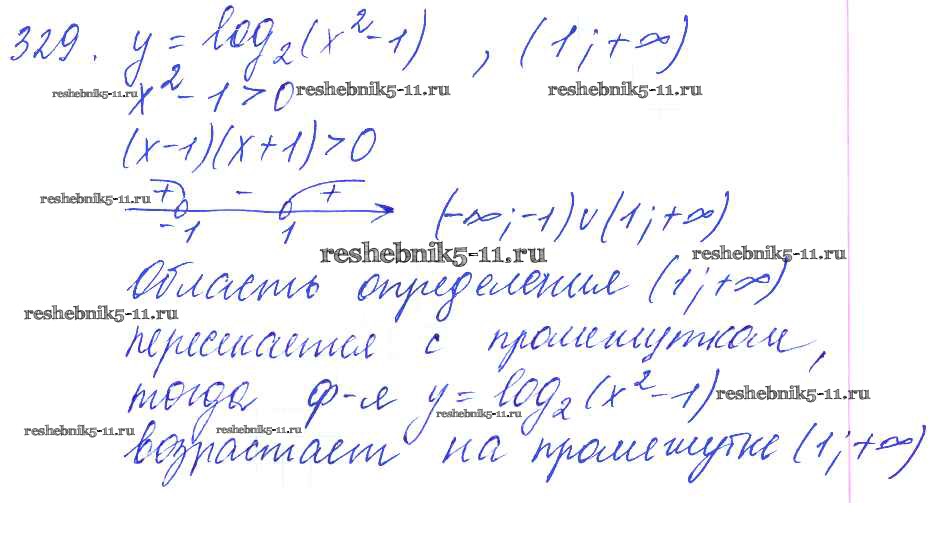 329. y = log₂(x² - 1) , (1; +∞)
reshebnik5-11.ru reshebnik5-11.ru reshebnik5-11.ru
x² - 1 > 0
(x-1)(x+1) > 0
reshebnik5-11.ru + - +
-1 1 (-∞; -1) ∪ (1; +∞)
reshebnik5-11.ru reshebnik5-11.ru
Область определения (1; +∞)
reshebnik5-11.ru
пересекается с промежутком,
тогда ф-я y = log₂(x² - 1) reshebnik5-11.ru
reshebnik5-11.ru reshebnik5-11.ru reshebnik5-11.ru
возрастает на промежутке (1; +∞)